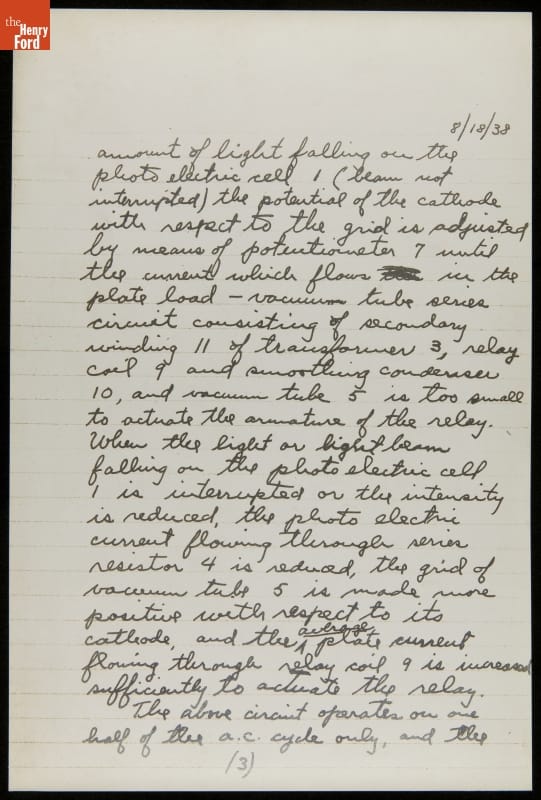 the
Henry
Ford
8/18/38
amount of light falling on the
photo electric cell 1 (beam not
interrupted) the potential of the cathode
with respect to the grid is adjusted
by means of potentiometer 7 until
the current which flows in the
plate load - vacuum tube series
circuit consisting of secondary
winding 11 of transformer 3, relay
coil 9 and smoothing condenser
10, and vacuum tube 5 is too small
to actuate the armature of the relay.
When the light or light beam
falling on the photo electric cell
1 is interrupted or the intensity
is reduced, the photo electric
current flowing through series
resistor 4 is reduced, the grid of
vacuum tube 5 is made more
positive with respect to its
cathode, and the average plate current
flowing through relay coil 9 is increased
sufficiently to actuate the relay.
The above circuit operates on one
half of the a.c. cycle only, and the
(3)